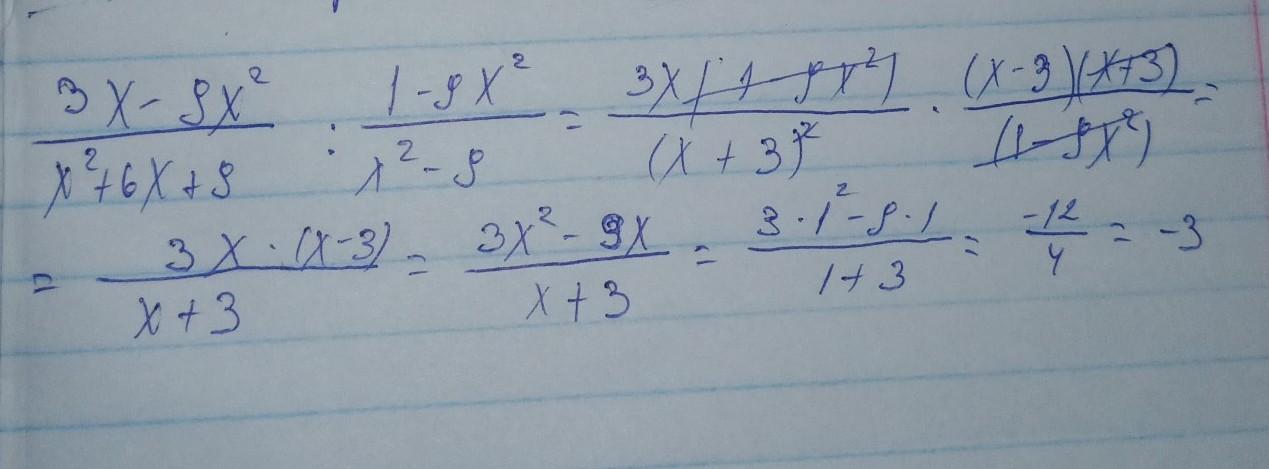 (3x - 9x²)/(x² + 6x + 9) : (1 - 9x²)/(x² - 9) = 3x(1 - 9x²)/(x + 3)² · (x - 3)(x + 3)/(1 - 9x²) =
= 3x · (x - 3)/(x + 3) = (3x² - 9x)/(x + 3) = (3 · 1² - 9 · 1)/(1 + 3) = -12/4 = -3